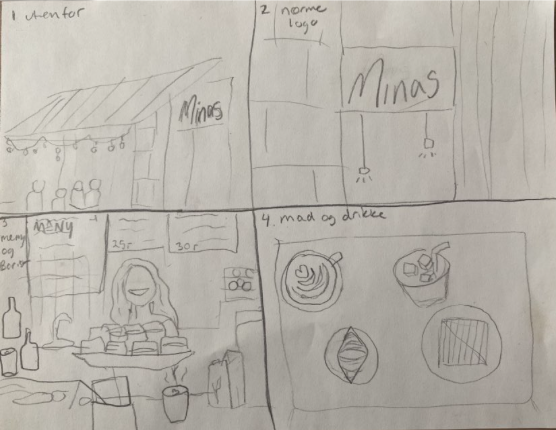 1 utenfor
Minas
2 nærme
logo
Minas
3
meny
og
MENY
25 r
30 r
4. mad og drikke